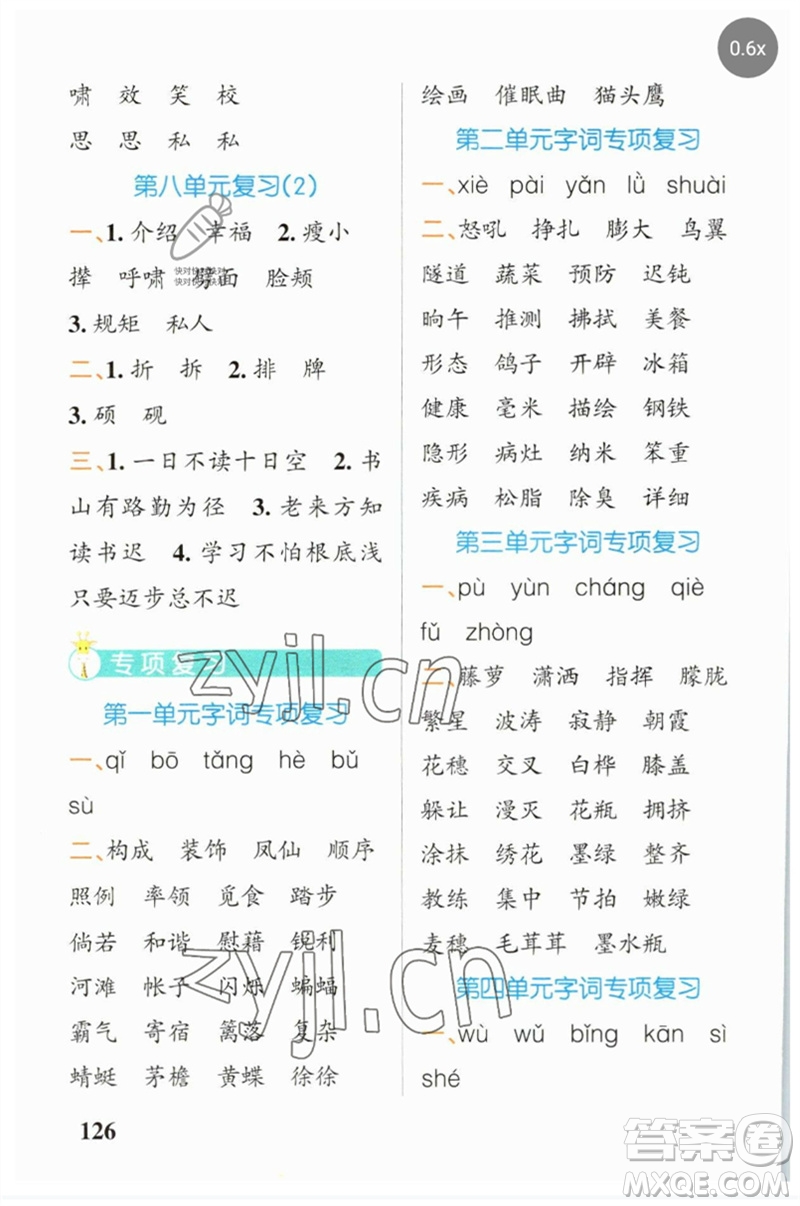 0.6x
啸 效 笑 校
思 思 私 私
第八单元复习(2)
一、1. 介绍 幸福 2. 瘦小
撵 呼啸 劈面 脸颊
3. 规矩 私人
二、1. 折 拆 2. 排 牌
3. 硕 砚
三、1. 一日不读十日空 2. 书
山有路勤为径 3. 老来方知
读书迟 4. 学习不怕根底浅
只要迈步总不迟
专项复习
第一单元字词专项复习
一、qǐ bō tǎng hè bǔ
sù
二、构成 装饰 凤仙 顺序
照例 率领 觅食 踏步
倘若 和谐 慰藉 锐利
河滩 帐子 闪烁 蝙蝠
霸气 寄宿 篱落 复杂
蜻蜓 茅檐 黄蝶 徐徐
126
绘画 催眠曲 猫头鹰
第二单元字词专项复习
一、xiè pài yǎn lǜ shuài
二、怒吼 挣扎 膨大 鸟翼
隧道 蔬菜 预防 迟钝
晌午 推测 拂拭 美餐
形态 鸽子 开辟 冰箱
健康 毫米 描绘 钢铁
隐形 病灶 纳米 笨重
疾病 松脂 除臭 详细
第三单元字词专项复习
一、pù yùn cháng qiè
fǔ zhòng
二、藤萝 潇洒 指挥 朦胧
繁星 波涛 寂静 朝霞
花穗 交叉 白桦 膝盖
躲让 漫灭 花瓶 拥挤
涂抹 绣花 墨绿 整齐
教练 集中 节拍 嫩绿
麦穗 毛茸茸 墨水瓶
第四单元字词专项复习
一、wù wǔ bǐng kān sì
shé
快对快对快对
快对快对快对
zyjl.cn
zyjl.cn
答案圈
MXQE.COM